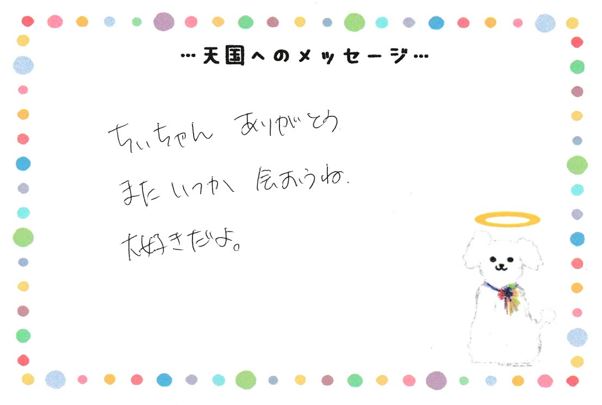 …天国へのメッセージ…
ちぃちゃん ありがとう
また いつか 会おうね.
大好きだよ。